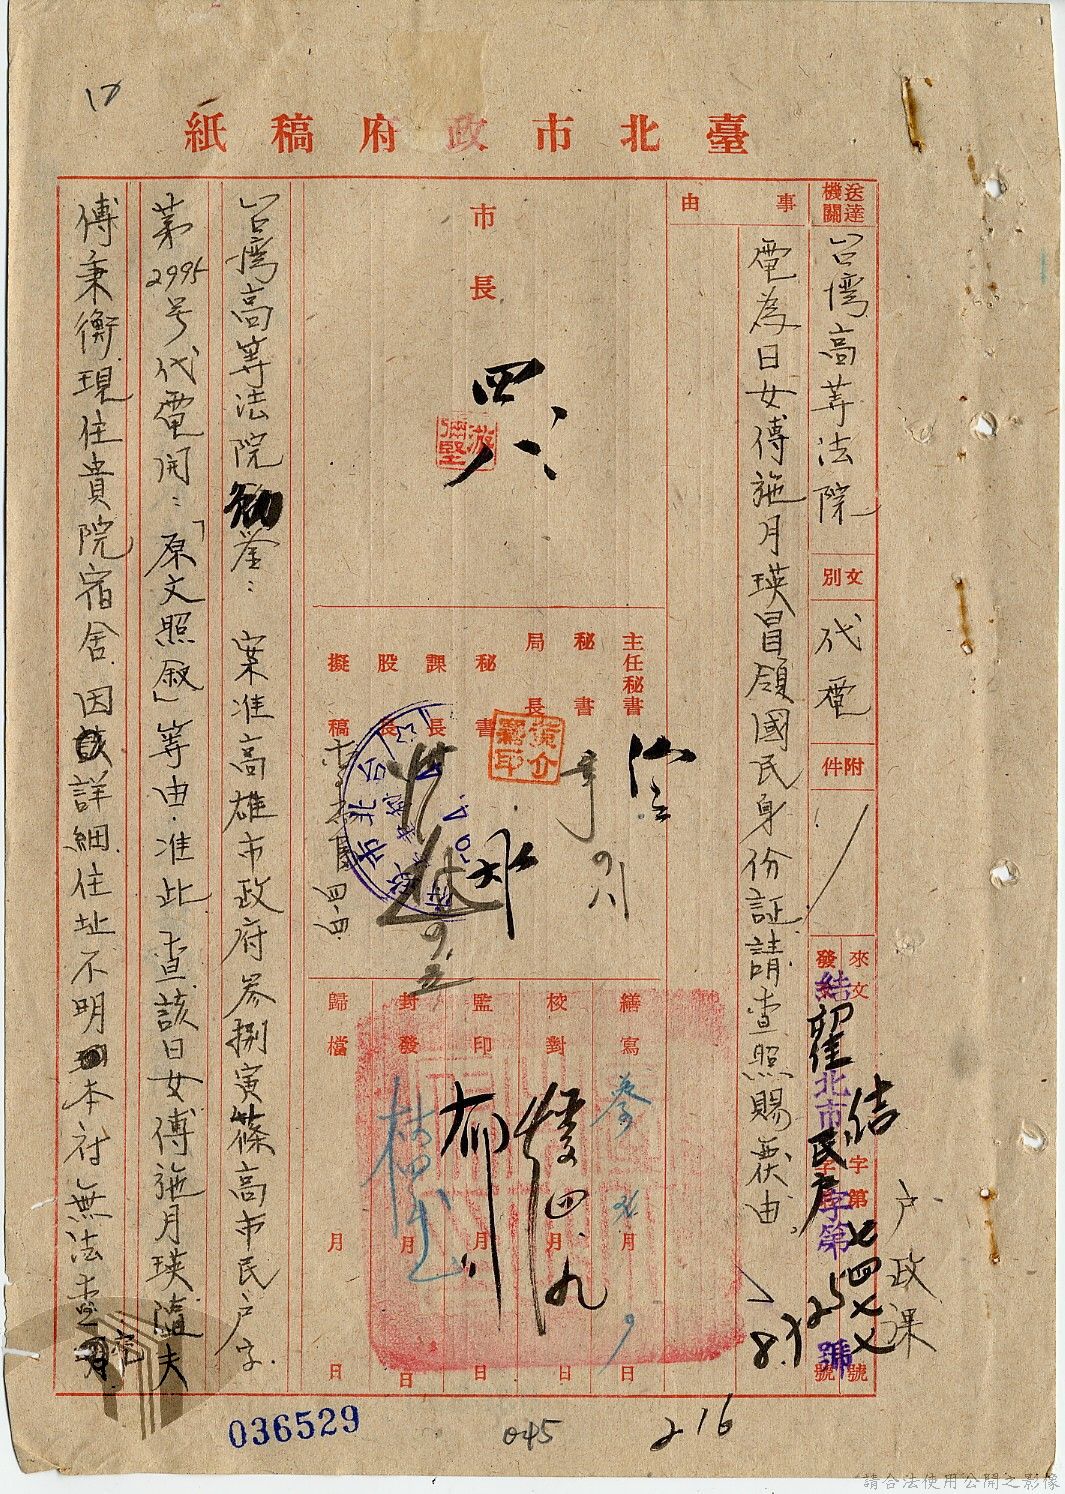 臺北市政府稿紙
送達機關
台灣高等法院
文別
代電
附件
來文
字第
號
發
北市
民戶
字第
號
戶政課
事由
電為日女傅施月瑛冒領國民身份証請查照賜覆由。
市長
游彌堅
主任秘書
秘書
局長
秘書
課長
股長
擬稿
繕寫
月
日
校對
月
日
監印
月
日
封發
月
日
歸檔
月
日
台灣高等法院公鉴：案准高雄市政府叁捌寅篠高市民戶字
第2995号代電開：「原文照叙」等由．准此查該日女傅施月瑛隨夫
傅秉衡現住貴院宿舍因詳細住址不明本府無法查
036529
045
216
請合法使用公開之影像